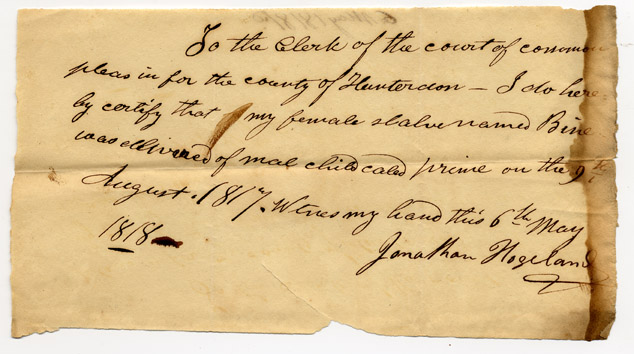 To the Clerk of the court of common
pleas in for the county of Hunterdon — I do here-
by certify that my female slalve named Bine
was dlivered of mal child caled prime on the 9th
August. 1817. Witnes my hand this 6th May
1818
Jonathan Hogeland